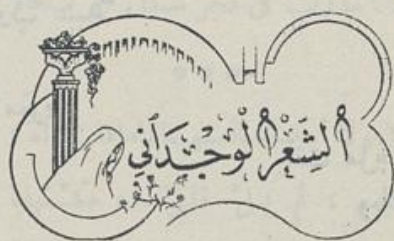 الشِعْرُ الْوِجْدَانِي